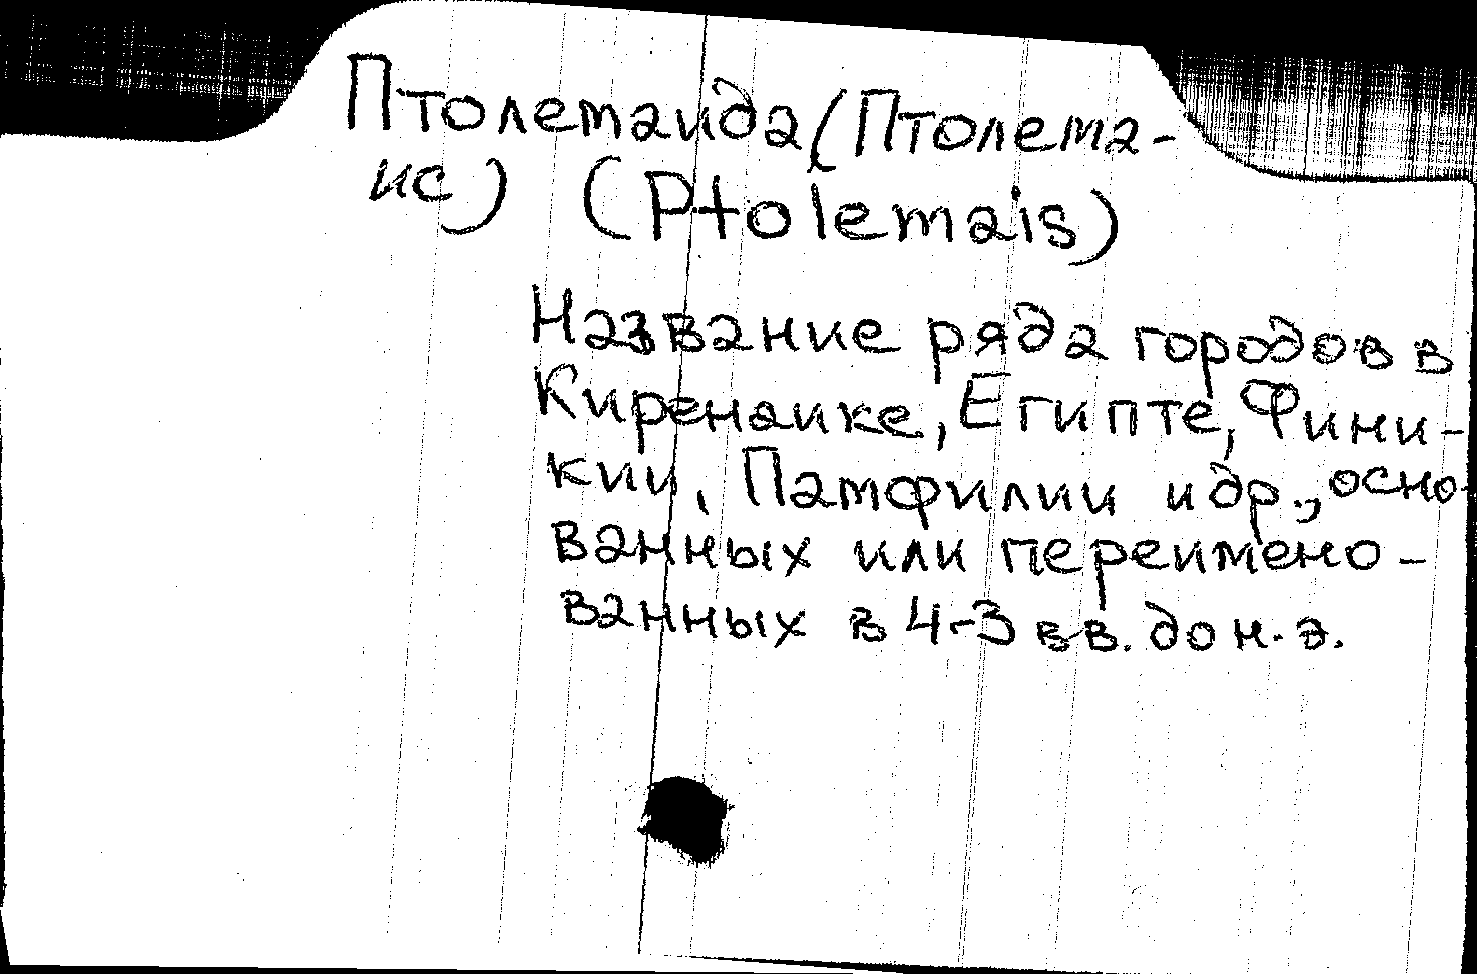 Птолемаида (Птолема-
ис) (Ptolemais)
Название ряда городов в
Киренаике, Египте, Фини-
кии, Памфилии и др., осно-
ванных или переимено-
ванных в 4-3 вв. до н.э.